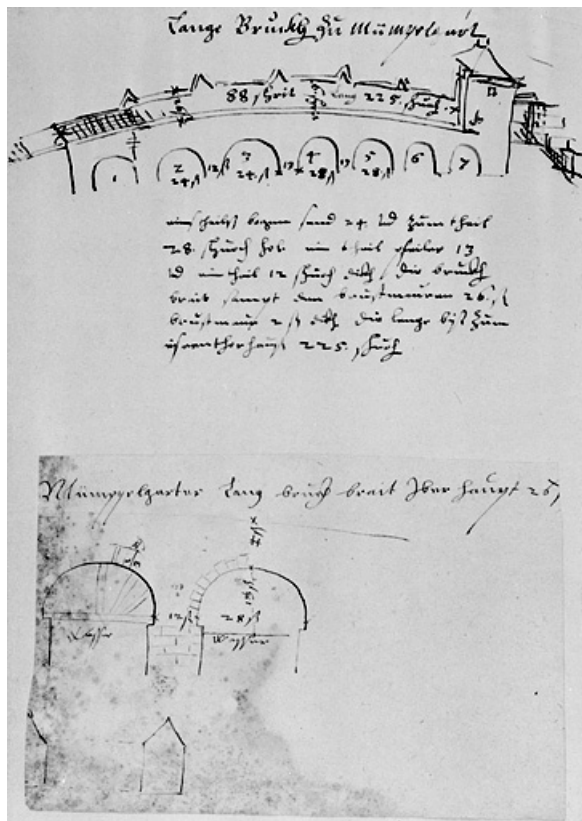 Lange Bruckh zu Mümpelgart
88 schrit lang 225. schuch
1 2 3 4 5 6 7
24. ß 12 ß 24. ß 13 28 ß 13 28. ß
bogen send 24. vd zum theil
28. schuch hol. ein theil pfeiler 13
vd ein theil 12 schuch dikh, die brukh
breit sampt den brustmauren 26. ß
brustmaur 2 ß dikh die lenge biß zum
225. schuch
Mümppelgarter Lang brugh breit Iber haupt 26
12 ß 28 ß
Wasser Wasser